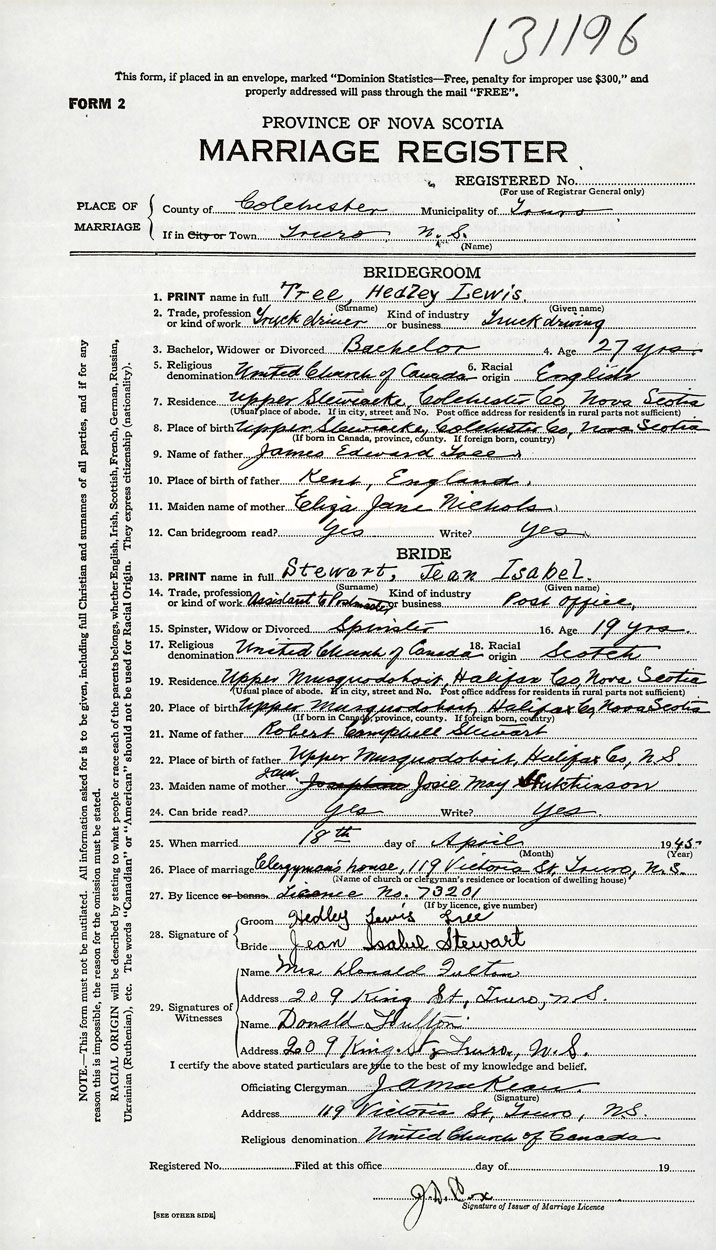 131196
This form, if placed in an envelope, marked "Dominion Statistics—Free, penalty for improper use $300," and
properly addressed will pass through the mail "FREE".
FORM 2
PROVINCE OF NOVA SCOTIA
MARRIAGE REGISTER
REGISTERED No.
(For use of Registrar General only)
PLACE OF MARRIAGE
County of Colchester Municipality of Truro
If in City or Town Truro, N.S.
(Name)
BRIDEGROOM
1. PRINT name in full Tree, Hedley Lewis.
(Surname) (Given name)
2. Trade, profession or kind of work Truck driver Kind of industry or business Truck driving
3. Bachelor, Widower or Divorced Bachelor 4. Age 27 yrs.
5. Religious denomination United Church of Canada 6. Racial origin English
7. Residence Upper Stewiacke, Colchester Co, Nova Scotia
(Usual place of abode. If in city, street and No. Post office address for residents in rural parts not sufficient)
8. Place of birth Upper Stewiacke, Colchester Co, Nova Scotia
(If born in Canada, province, county. If foreign born, country)
9. Name of father James Edward Tree
10. Place of birth of father Kent, England.
11. Maiden name of mother Eliza Jane Nichols
12. Can bridegroom read? Yes Write? Yes
BRIDE
13. PRINT name in full Stewart, Jean Isabel.
(Surname) (Given name)
14. Trade, profession or kind of work Assistant to Postmaster Kind of industry or business Post Office,
15. Spinster, Widow or Divorced Spinster 16. Age 19 yrs.
17. Religious denomination United Church of Canada 18. Racial origin Scotch
19. Residence Upper Musquodoboit, Halifax Co, Nova Scotia
(Usual place of abode. If in city, street and No. Post office address for residents in rural parts not sufficient)
20. Place of birth Upper Musquodoboit, Halifax Co, Nova Scotia
(If born in Canada, province, county. If foreign born, country)
21. Name of father Robert Campbell Stewart
22. Place of birth of father Upper Musquodoboit, Halifax Co, N.S.
23. Maiden name of mother Josephine Josie May Hutchinson
24. Can bride read? Yes Write? Yes
25. When married 18th day of April 1945
(Month) (Year)
26. Place of marriage Clergyman's house, 119 Victoria St, Truro, N.S.
(Name of church or clergyman's residence or location of dwelling house)
27. By licence or banns. Licence No. 73201
(If by licence, give number)
28. Signature of
Groom Hedley Lewis Tree
Bride Jean Isabel Stewart
29. Signatures of Witnesses
Name Mrs Donald Fulton
Address 209 King St, Truro, N.S.
Name Donald Fulton
Address 209 King St, Truro, N.S.
I certify the above stated particulars are true to the best of my knowledge and belief.
Officiating Clergyman
(Signature)
Address 119 Victoria St, Truro, NS.
Religious denomination United Church of Canada
Registered No. Filed at this office day of 19
J.D. Cox
Signature of Issuer of Marriage Licence
[SEE OTHER SIDE]
NOTE.—This form must not be mutilated. All information asked for is to be given, including full Christian and surnames of all parties, and if for any
reason this is impossible, the reason for the omission must be stated.
RACIAL ORIGIN will be described by stating to what people or race each of the parents belongs, whether English, Irish, Scottish, French, German, Russian,
Ukrainian (Ruthenian), etc. The words "Canadian" or "American" should not be used for Racial Origin. They express citizenship (nationality).